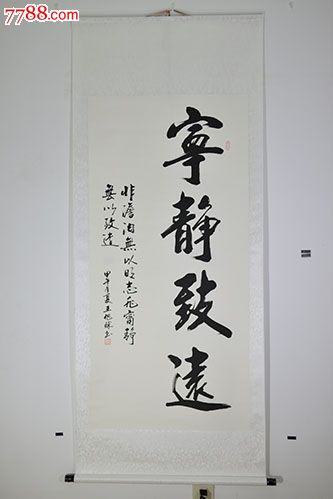 7788.com
寧靜致遠
非澹泊無以明志非甯靜
無以致遠
甲午